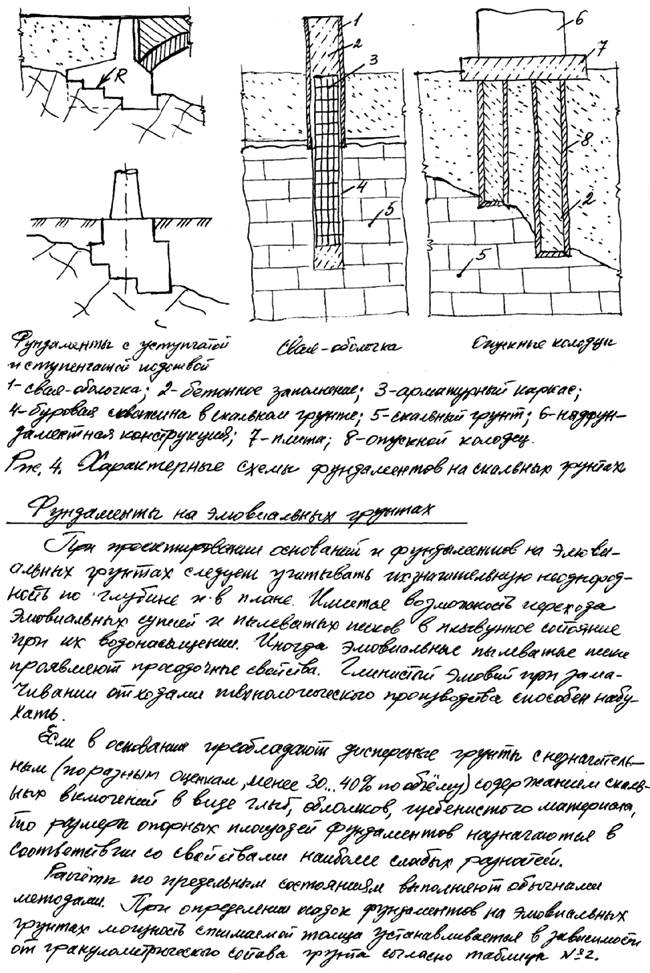 R
1
2
3
4
5
6
7
8
2
5
Фундаменты с уступчатой
и ступенчатой подошвой
Свая-оболочка
Опускные колодцы
1-свая-оболочка; 2-бетонное заполнение; 3-арматурный каркас;
4-буровая скважина в скальном грунте; 5-скальный грунт; 6-надфун-
даментная конструкция; 7-плита; 8-опускной колодец.
Рис. 4. Характерные схемы фундаментов на скальных грунтах
Фундаменты на элювиальных грунтах
При проектировании оснований и фундаментов на элюви-
альных грунтах следует учитывать их значительную неоднород-
ность по глубине и в плане. Имеется возможность перехода
элювиальных супесей и пылеватых песков в плывунное состояние
при их водонасыщении. Иногда элювиальные пылеватые пески
проявляют просадочные свойства. Глинистый элювий при зама-
чивании отходами технологического производства способен набу-
хать.
Если в основании преобладают дисперсные грунты с незначитель-
ным (по разным оценкам, менее 30...40% по объёму) содержанием скаль-
ных включений в виде глыб, обломков, щебенистого материала,
то размеры опорных площадей фундаментов назначаются в
соответствии со свойствами наиболее слабых разностей.
Расчёты по предельным состояниям выполняют обычными
методами. При определении осадок фундаментов на элювиальных
грунтах мощность сжимаемой толщи устанавливается в зависимости
от гранулометрического состава грунта согласно таблице №2.